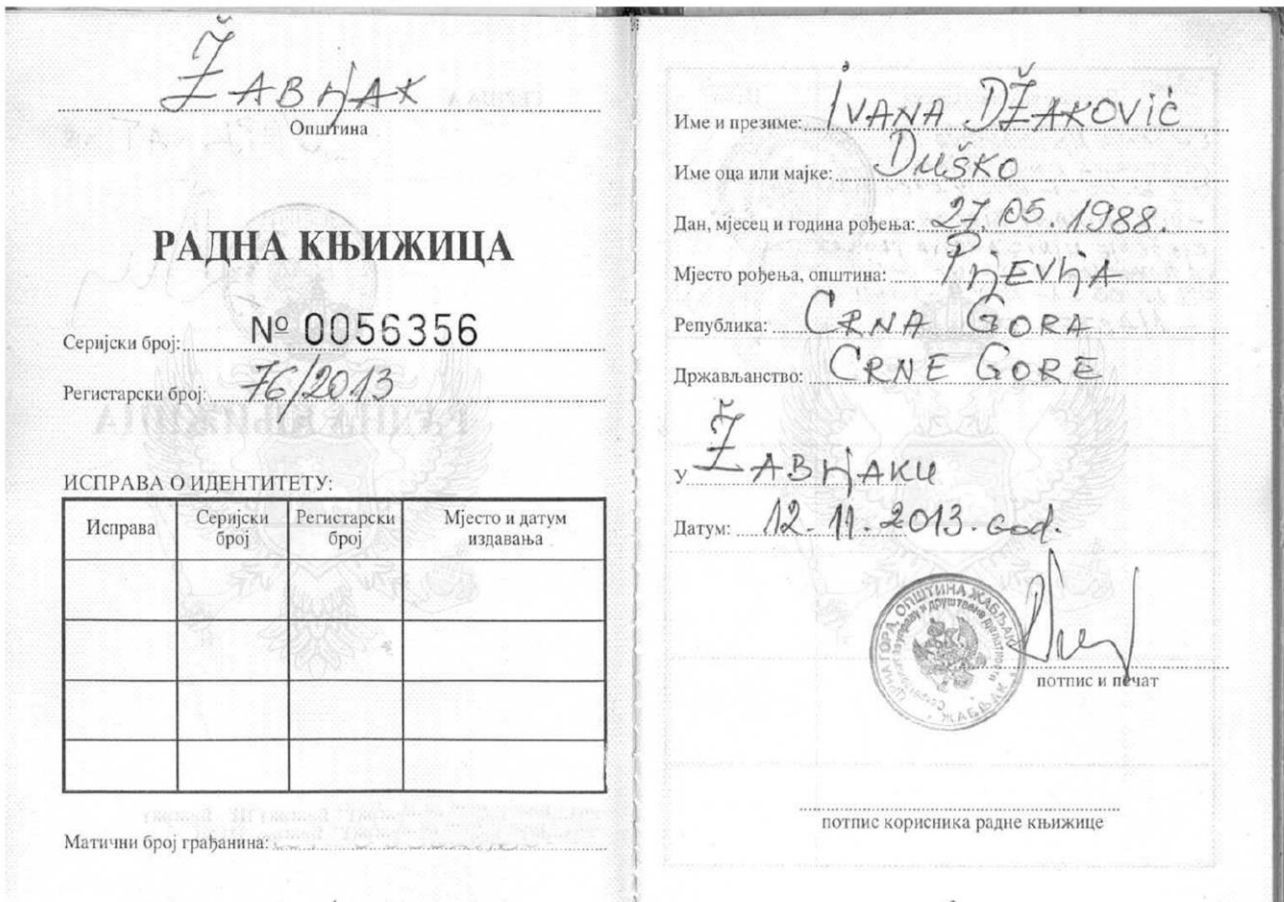 ŽABЉAK
Општина
РАДНА КЊИЖИЦА
Серијски број: № 0056356
Регистарски број: 76/2013
ИСПРАВА О ИДЕНТИТЕТУ:
Исправа Серијски број Регистарски број Мјесто и датум издавања
Матични број грађанина:
Име и презиме: IVANA DŽAKOVIĆ
Име оца или мајке: DUŠKO
Дан, мјесец и година рођења: 27.05.1988.
Мјесто рођења, општина: PЉEVЉA
Република: CRNA GORA
Држављанство: CRNE GORE
У ŽABЉAKU
Датум: 12.11.2013. god.
ЦРНА ГОРА, ОПШТИНА ЖАБЉАК
ЖАБЉАК
потпис и печат
потпис корисника радне књижице